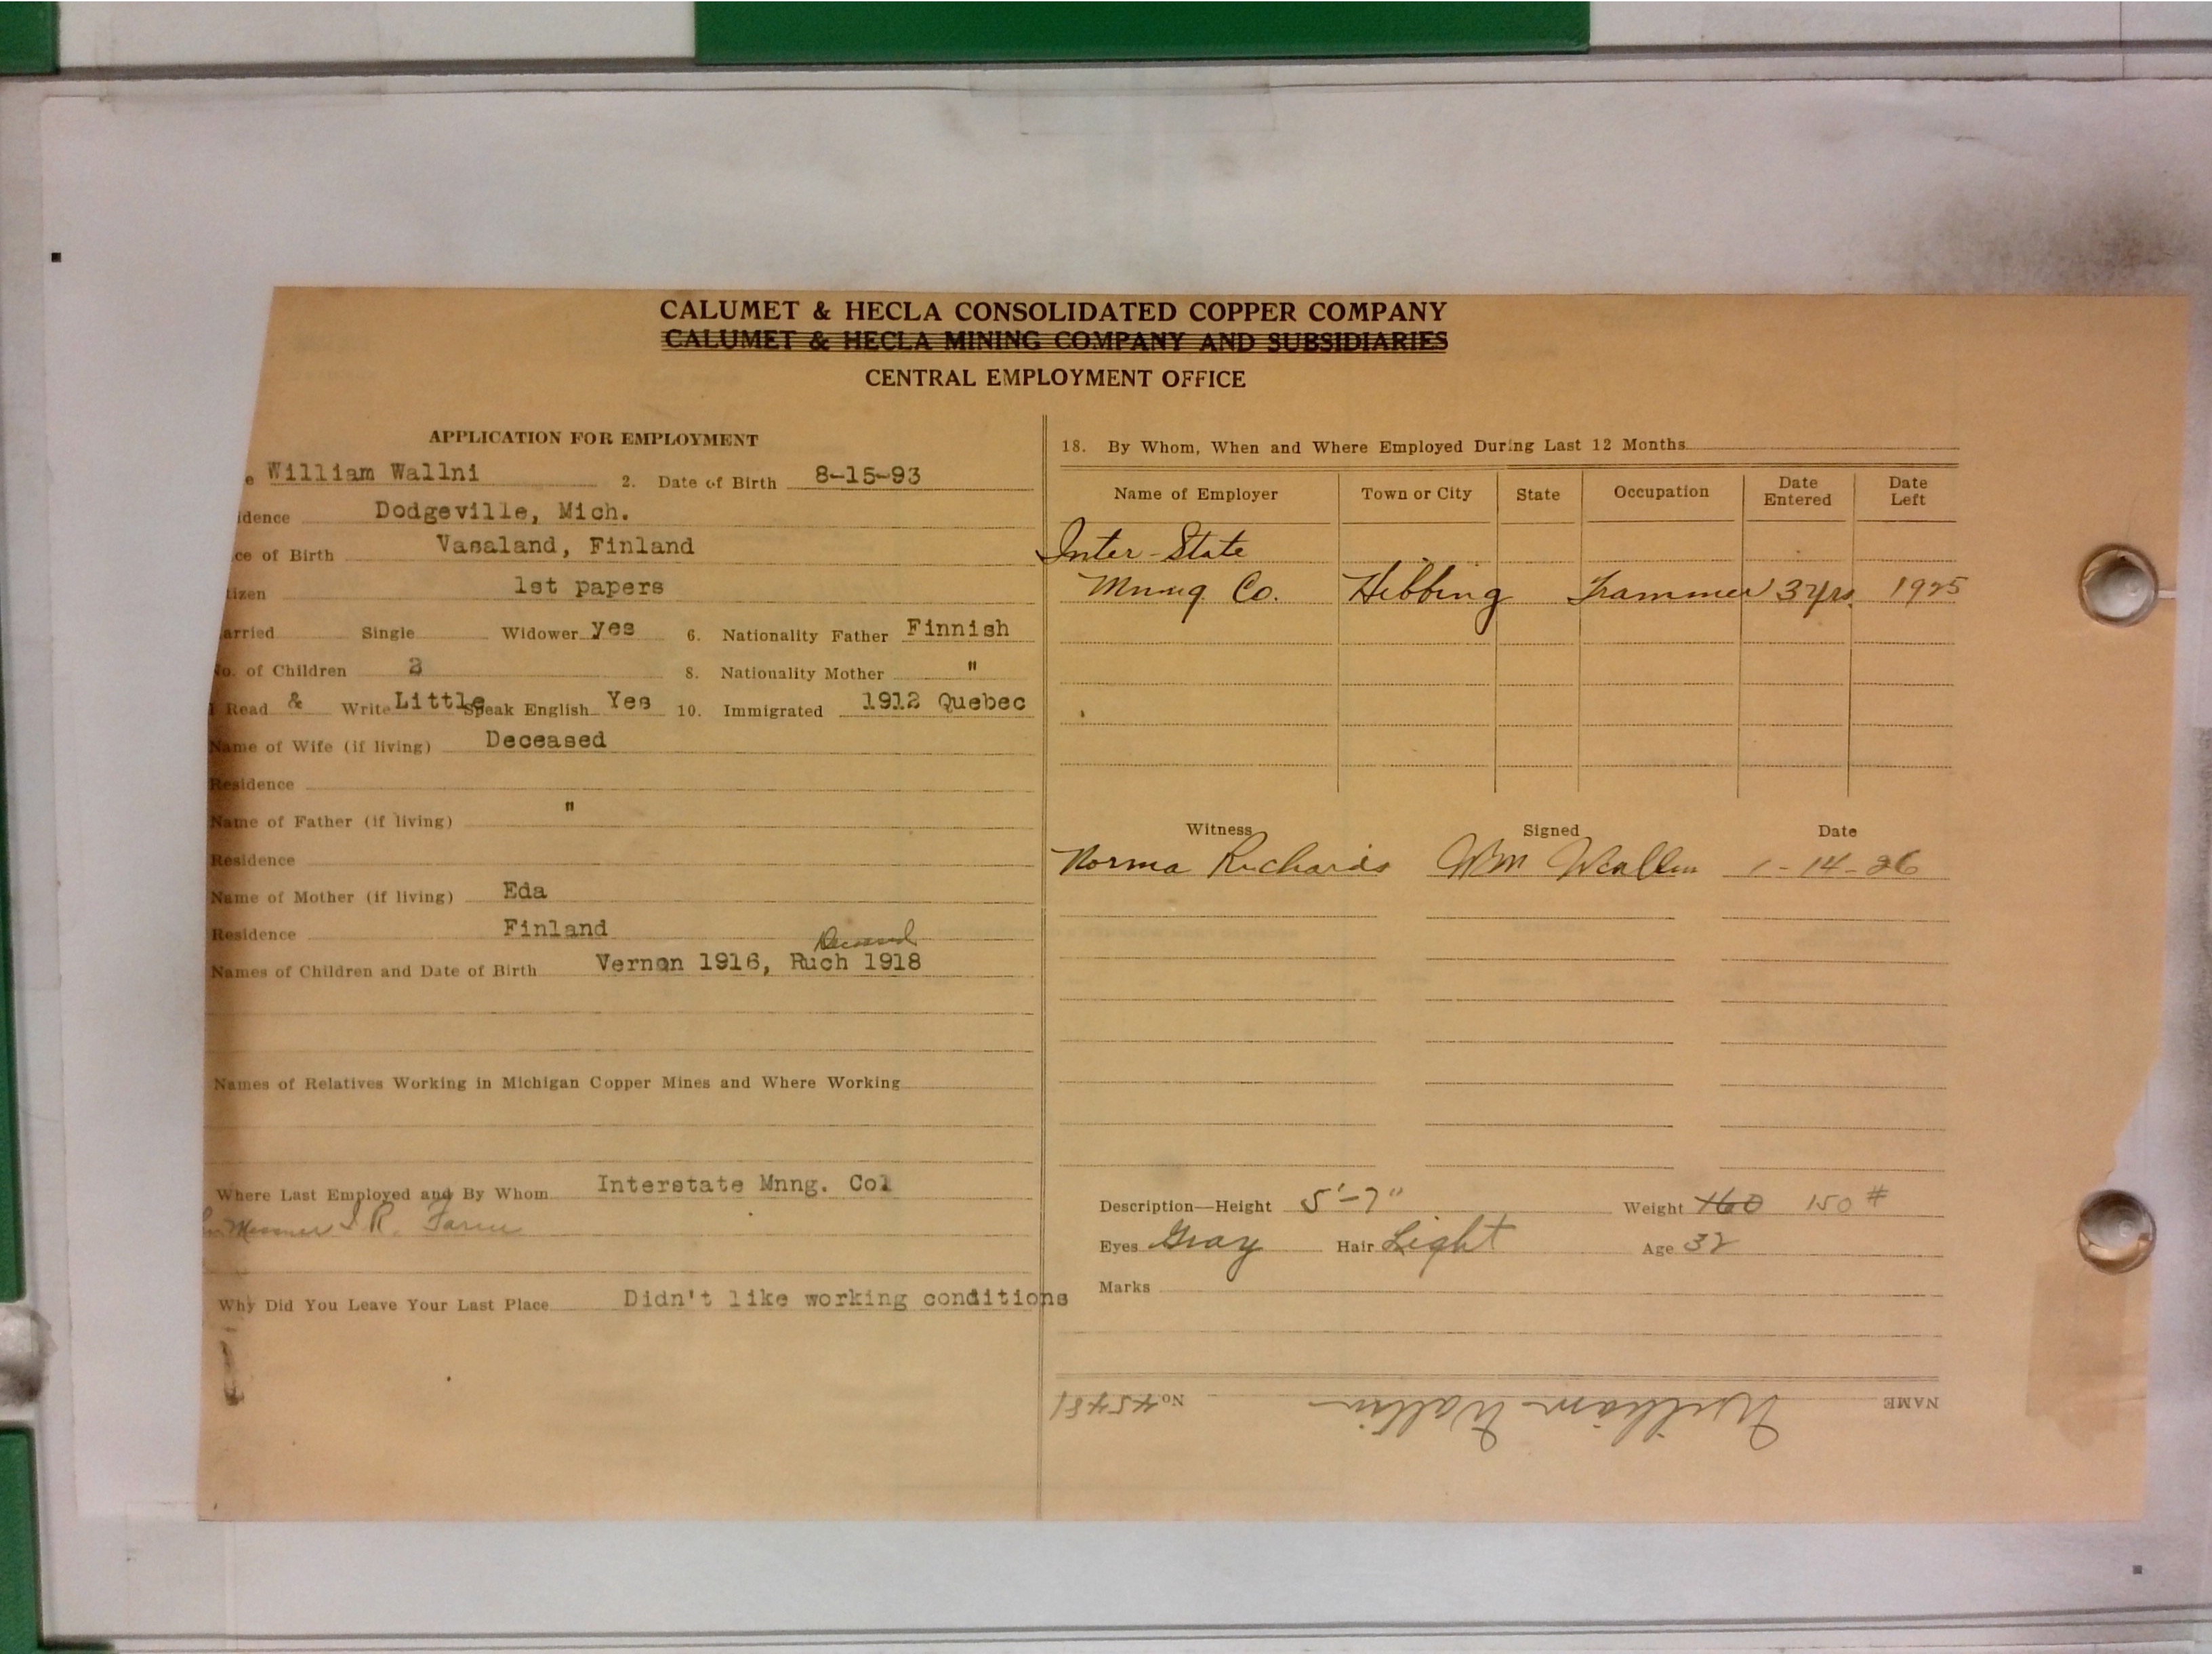 CALUMET & HECLA CONSOLIDATED COPPER COMPANY
CALUMET & HECLA MINING COMPANY AND SUBSIDIARIES
CENTRAL EMPLOYMENT OFFICE
APPLICATION FOR EMPLOYMENT
e William Wallni 2. Date of Birth 8-15-93
idence Dodgeville, Mich.
ce of Birth Vasaland, Finland
tizen 1st papers
arried Single Widower yes 6. Nationality Father Finnish
o. of Children 8. Nationality Mother "
Read & Write Little Speak English Yes 10. Immigrated 1912 Quebec
Name of Wife (if living) Deceased
Residence
Name of Father (if living) "
Residence
Name of Mother (if living) Eda
Residence Finland
Deceased
Names of Children and Date of Birth Vernon 1916, Ruch 1918
Names of Relatives Working in Michigan Copper Mines and Where Working
Where Last Employed and By Whom Interstate Mnng. Col
R. Farm
Why Did You Leave Your Last Place Didn't like working conditions
18. By Whom, When and Where Employed During Last 12 Months
Name of Employer Town or City State Occupation Date Entered Date Left
Inter-State
Mnng Co. Hibbing Trammer 3 yrs. 1925
Witness Signed Date
Norma Richards Wm Wallin 1-14-26
Description—Height 5'-7" Weight 160 150 #
Eyes Gray Hair Light Age 32
Marks
NAME William Wallin No. 45481